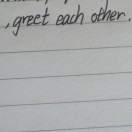 , greet each other.